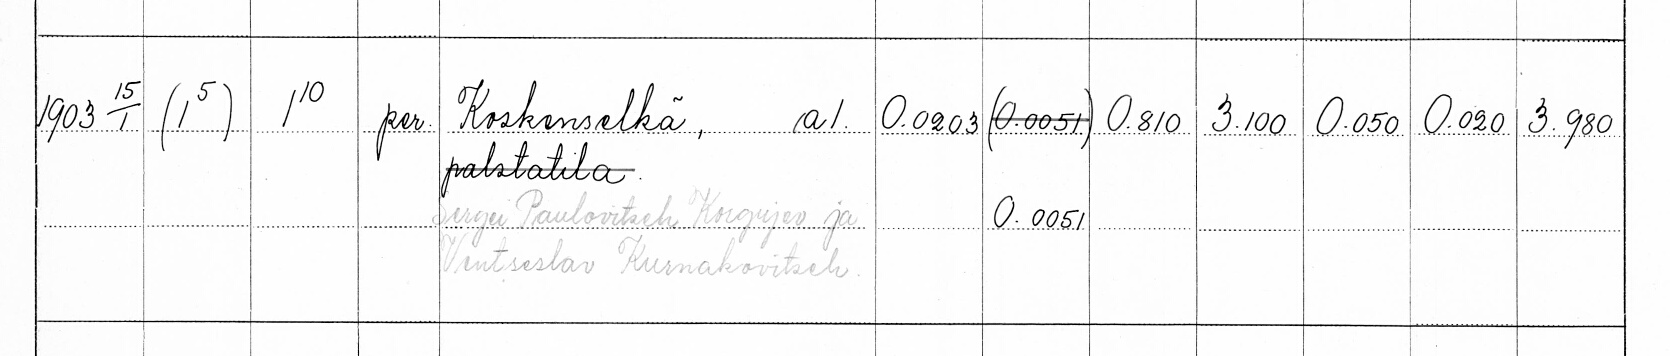 1903 15/1 (1⁵) 1¹⁰ per. Koskenselkä, al. 0.0203 (0.0051) 0.810 3.100 0.050 0.020 3.980
palstatila.
Sergei Paulovitsch Korgujev ja 0.0051
Ventseslav Kurnakovitsch.